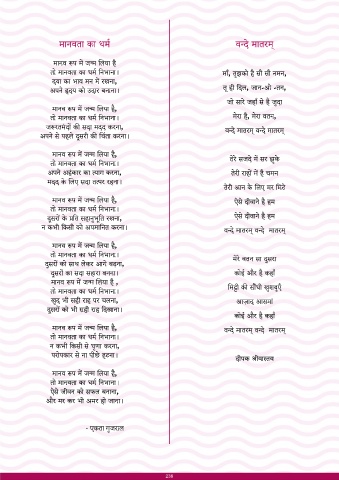 मानवता का धर्म
मानव रूप में जन्म लिया है
तो मानवता का धर्म निभाना।
दया का भाव मन में रखना,
अपने हृदय को उदार बनाना।
मानव रूप में जन्म लिया है,
तो मानवता का धर्म निभाना।
जरूरतमंदों की सदा मदद करना,
अपने से पहले दूसरों की चिंता करना।
मानव रूप में जन्म लिया है,
तो मानवता का धर्म निभाना।
अपने अहंकार का त्याग करना,
मदद के लिए सदा तत्पर रहना।
मानव रूप में जन्म लिया है,
तो मानवता का धर्म निभाना।
दूसरों के प्रति सहानुभूति रखना,
न कभी किसी को अपमानित करना।
मानव रूप में जन्म लिया है,
तो मानवता का धर्म निभाना।
दूसरों को साथ लेकर आगे बढ़ना,
दूसरों का सदा सहारा बनना।
मानव रूप में जन्म लिया है ,
तो मानवता का धर्म निभाना।
खुद भी सही राह पर चलना,
दूसरों को भी सही राह दिखाना।
मानव रूप में जन्म लिया है,
तो मानवता का धर्म निभाना।
न कभी किसी से घृणा करना,
परोपकार से ना पीछे हटना।
मानव रूप में जन्म लिया है,
तो मानवता का धर्म निभाना।
ऐसे जीवन को सफल बनाना,
और मर कर भी अमर हो जाना।
- एकता गुजराल
वन्दे मातरम्
माँ, तुझको है सौ सौ नमन,
तू ही दिल, जान-ओ -तन,
जो सारे जहाँ से है जुदा
मेरा है, मेरा वतन,
वन्दे मातरम् वन्दे मातरम्
तेरे सजदे में सर झुके
तेरी राहों में है चमन
तेरी आन के लिए मर मिटे
ऐसे दीवाने है हम
ऐसे दीवाने है हम
वन्दे मातरम् वन्दे मातरम्
मेरे वतन सा दूसरा
कोई और है कहाँ
मिट्टी की सौंधी खुशबुएँ
आज़ाद आसमां
कोई और है कहाँ
वन्दे मातरम् वन्दे मातरम्
दीपक श्रीवास्तव